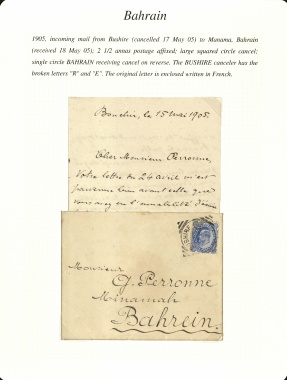 Bahrain
1905, incoming mail from Bushire (cancelled 17 May 05) to Manama, Bahrain
(received 18 May 05); 2 1/2 annas postage affixed; large squared circle cancel;
single circle BAHRAIN receiving cancel on reverse. The BUSHIRE canceler has the
broken letters "R" and "E". The original letter is enclosed written in French.
Bouchir, le 15 Mai 1905
Cher Monsieur Perronne,
Votre lettre du 24 avril m'est
parvenue
Monsieur
G. Perronne
Minamah
Bahrein.